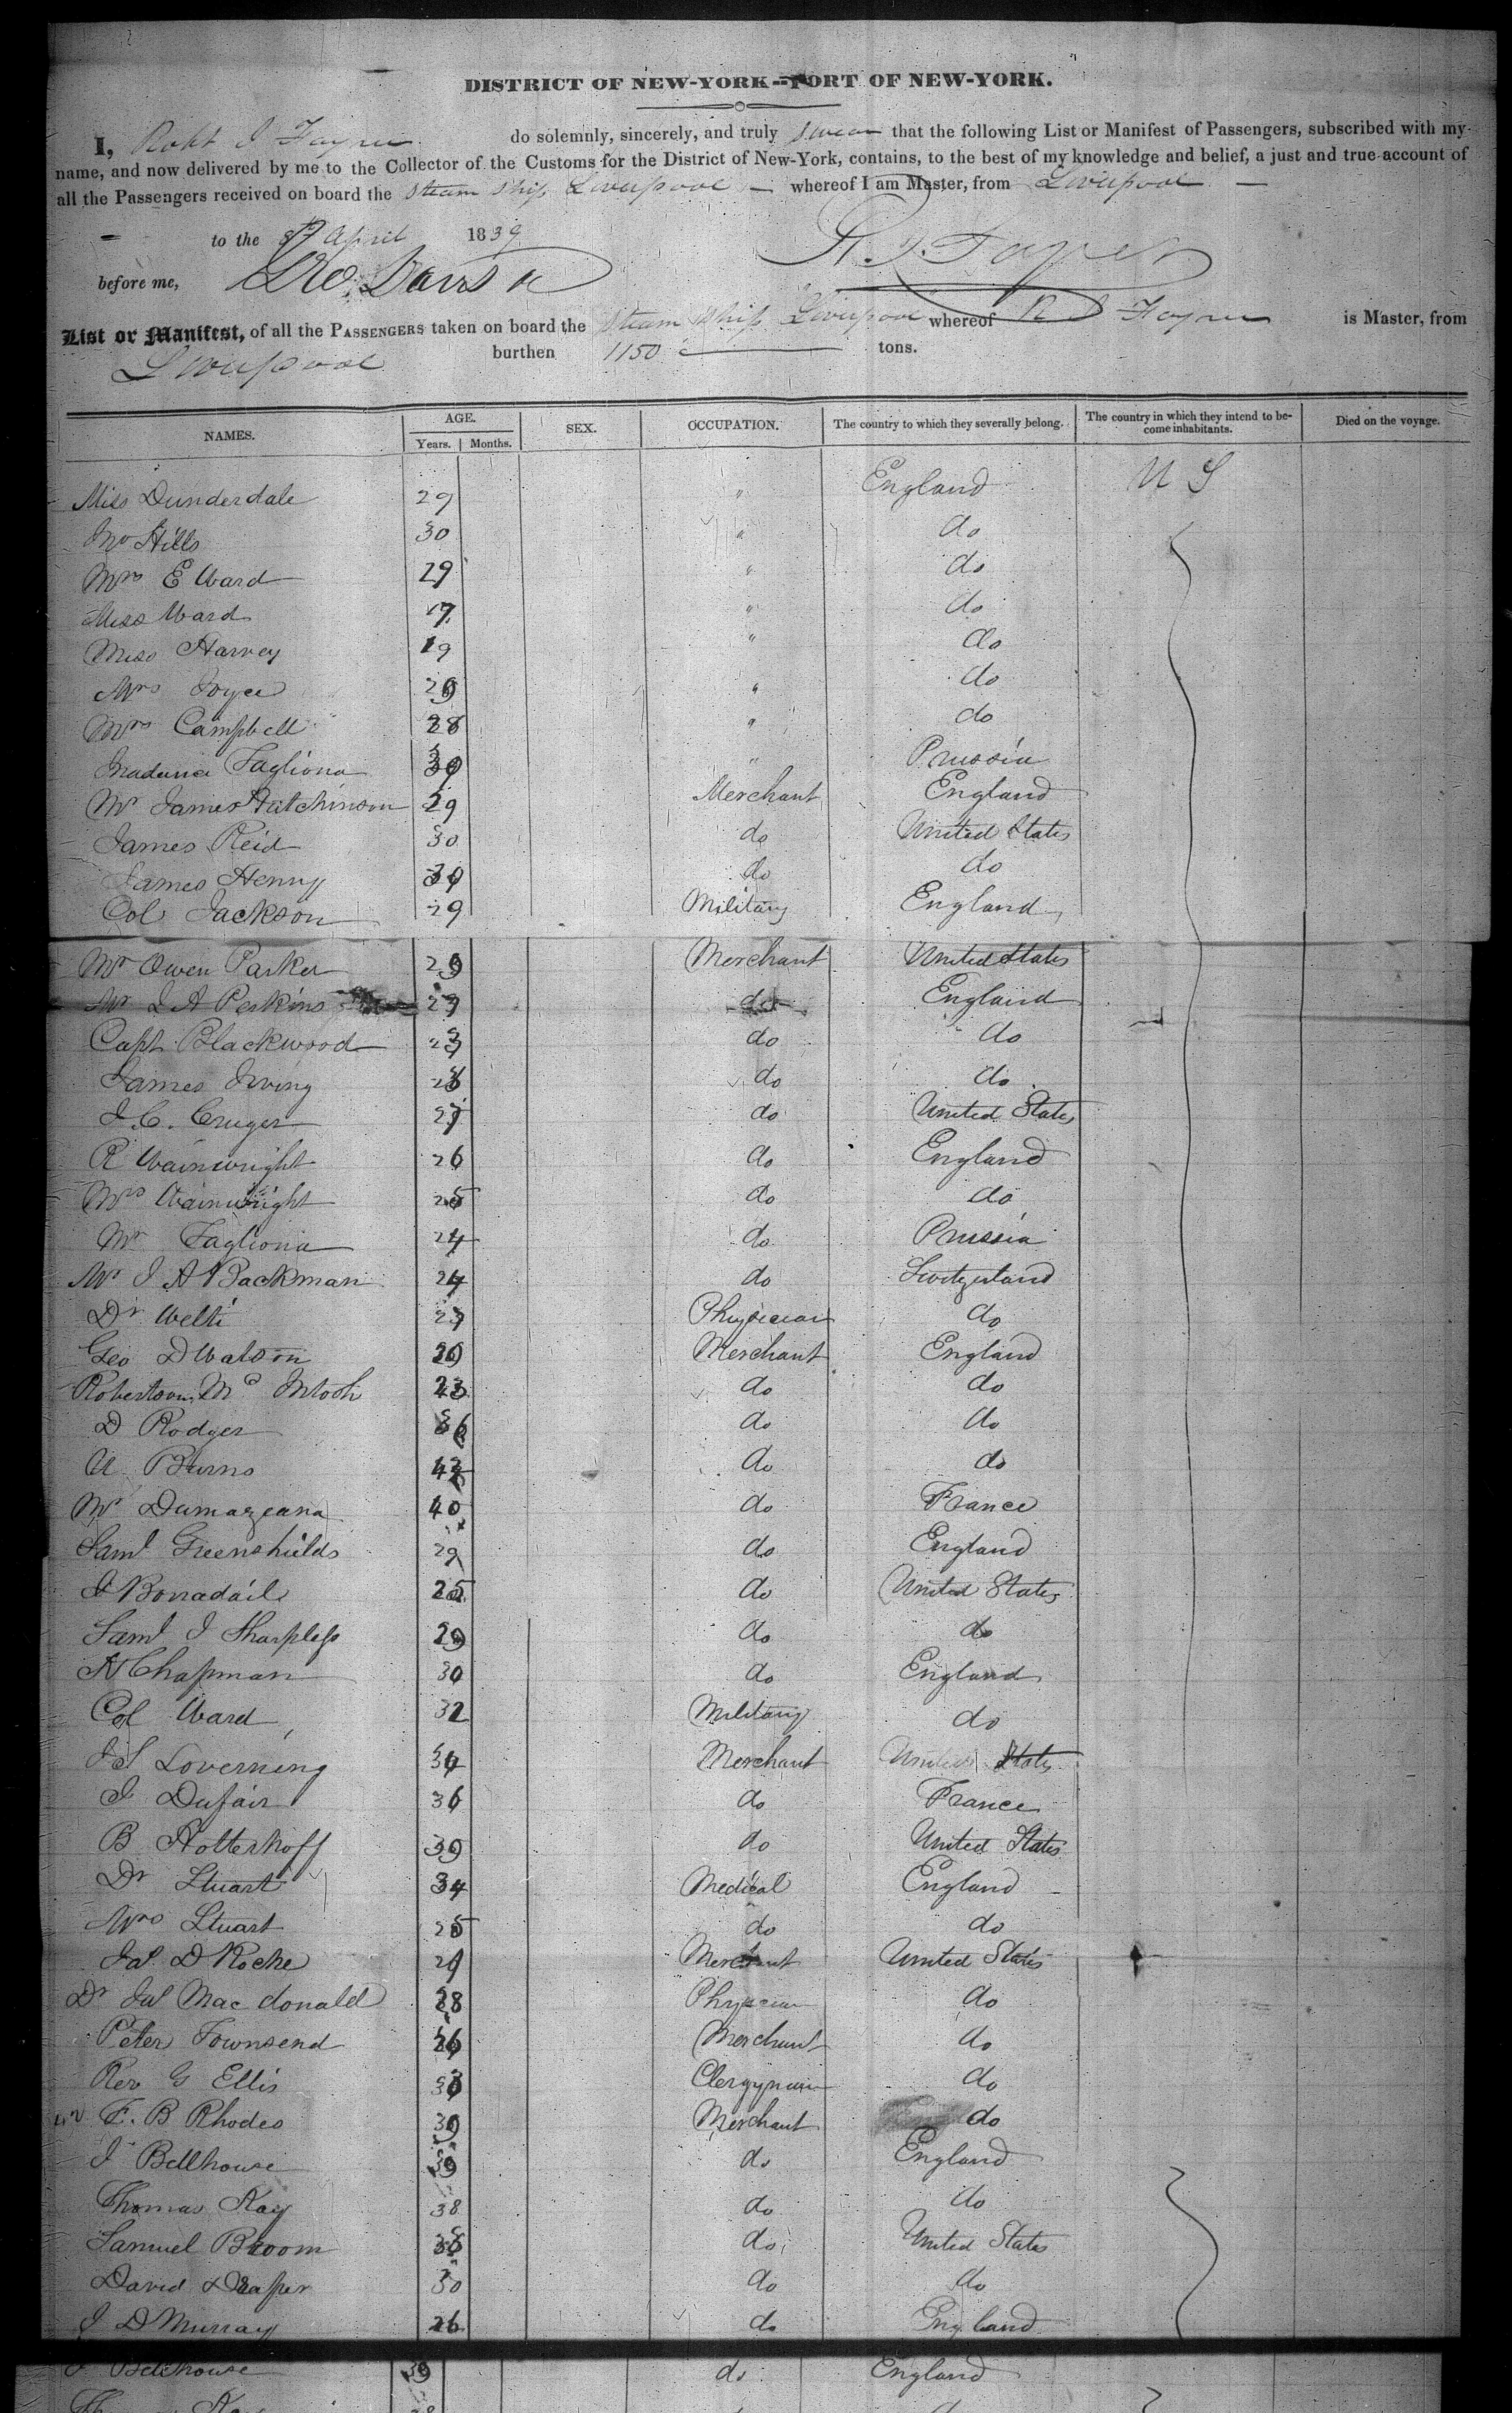 DISTRICT OF NEW-YORK--PORT OF NEW-YORK.
I, Robt J Fayrer do solemnly, sincerely, and truly swear that the following List or Manifest of Passengers, subscribed with my
name, and now delivered by me to the Collector of the Customs for the District of New-York, contains, to the best of my knowledge and belief, a just and true account of
all the Passengers received on board the Steam Ship Liverpool whereof I am Master, from Liverpool
to the April 1839
before me, R. J. Fayrer
List or Manifest, of all the PASSENGERS taken on board the Steam Ship Liverpool whereof R J Fayrer is Master, from
Liverpool burthen 1150 tons.
NAMES. AGE. Years. Months. SEX. OCCUPATION. The country to which they severally belong. The country in which they intend to become inhabitants. Died on the voyage.
Miss Dunderdale 29 " England U S
Mr Hills 30 " do
Mrs E Ward 29 " do
Miss Ward 17 " do
Miss Harvey 19 " do
Mrs Joyce " do
Mrs Campbell 28 " do
Madama Tagliona " Prussia
Mr James Hutchinson 29 Merchant England
James Reid 30 do United States
James Henry do do
Col Jackson 29 Military England
Mr Owen Parker 29 Merchant United States
Mr J A Perkins do England
Capt Blackwood do do
James Irving 28 do do
J. C. Cruger 27 do United States
R Wainwright 26 do England
Mrs Wainwright 25 do do
Mr Tagliona 24 do Prussia
Mr J A Backman 24 do Switzerland
Dr Welti Physician do
Geo D Watson Merchant England
Robertson Mc Intosh do do
D Rodger do do
Burns do do
Mr Dumazeana 40 do France
Saml Greenshields 29 do England
J Borradaile 25 do United States
Saml J Sharpless 29 do do
N Chapman 30 do England
Col Ward 32 Military do
J S Loverning 34 Merchant United States
J Dufair 36 do France
B Hotterhoff 39 do United States
Dr Stuart 34 Medical England
Mrs Stuart 25 do do
Jas D Roche Merchant United States
Dr Jas Mac donald 28 Physician do
Peter Townsend 36 Merchant do
Rev G Ellis Clergyman do
F. B Rhodes 39 Merchant do
J Bellhouse 39 do England
Thomas Kay 38 do do
Samuel Broom do United States
David Draper 30 do do
J D Murray 26 do England
J Bellhouse 39 do England